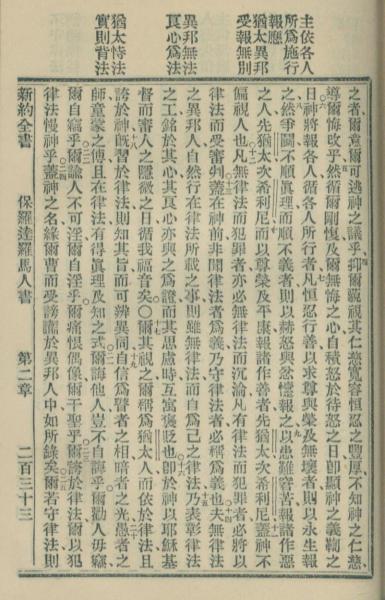 主依各人
所爲施行
報應
猶太異邦
受報無別
異邦無法
良心爲法
猶太恃法
實則背法
之者爾意爾可逃神之議乎抑爾藐視其仁慈寬容恒忍之豐厚不知神之仁慈
導爾悔改乎然循爾剛愎及爾無悔之心自積怒於待怒之日卽顯神之義鞫之
日神將報各人循各人所行者凡恒忍行善以求尊與榮及無壞者則以永生報
之然爭鬪不順眞理而順不義者則以赫怒與忿懥報之以患難窘苦報諸作惡
之人先猶太次希利尼而以尊榮及平康報諸作善者先猶太次希利尼蓋神不
偏視人也凡無律法而犯罪者亦必無律法而沉淪凡有律法而犯罪者必將以
律法而受審判蓋在神前非聞律法者爲義乃守律法者必稱爲義也夫無律法
之異邦人自然行在律法所載之事則雖無律法而自爲己之律法乃表彰律法
之工銘於其心其良心亦與之爲證而其思慮時互寓褒貶也卽於神以耶穌基
督而審人之隱微之日循我福音矣〇爾其視之爾稱爲猶太人而依於律法且
誇於神旣習於律法則知其旨而可辨異同自信爲瞽者之相暗者之光愚者之
師童蒙之傅且在律法有得眞理及知之式爾誨他人豈不自誨乎爾勸人毋竊
爾自竊乎爾諭人不可淫爾自淫乎爾痛恨偶像爾干聖乎爾誇於律法爾以犯
律法慢神乎蓋神之名緣爾曹而受謗讟於異邦人中如所錄矣爾若守律法則
新約全書 保羅達羅馬人書 第二章 二百三十三